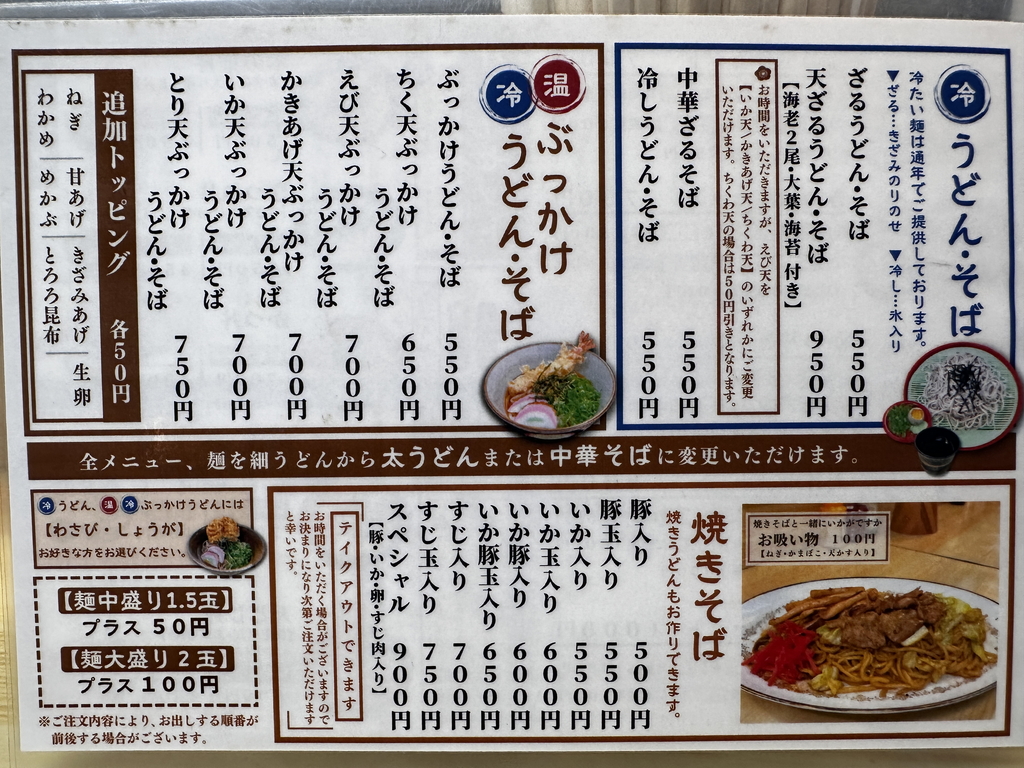 冷 うどん・そば
冷たい麺は通年でご提供しております。
▼ざる…きざみのりのせ ▼冷し…氷入り
ざるうどん・そば 550円
天ざるうどん・そば 950円
【海老2尾・大葉・海苔 付き】
お時間をいただきますが、えび天を
【いか天/かきあげ天/ちくわ天】のいずれかにご変更
いただけます。ちくわ天の場合は50円引きとなります。
中華ざるそば 550円
冷しうどん・そば 550円
冷 温 ぶっかけ
うどん・そば
ぶっかけうどん・そば 550円
ちく天ぶっかけ
うどん・そば 650円
えび天ぶっかけ
うどん・そば 700円
かきあげ天ぶっかけ
うどん・そば 700円
いか天ぶっかけ
うどん・そば 700円
とり天ぶっかけ
うどん・そば 750円
追加トッピング 各50円
ねぎ 甘あげ きざみあげ 生卵
わかめ めかぶ とろろ昆布
全メニュー、麺を細うどんから太うどんまたは中華そばに変更いただけます。
焼きそばと一緒にいかがですか
お吸い物 100円
【ねぎ・かまぼこ・天かす入り】
焼きそば
焼きうどんもお作りできます。
豚入り 500円
豚玉入り 550円
いか入り 550円
いか玉入り 600円
いか豚入り 600円
いか豚玉入り 650円
すじ入り 700円
すじ玉入り 750円
スペシャル 900円
【豚・いか・卵・すじ肉入り】
テイクアウトできます
お時間をいただく場合がございますので
お決まりになり次第ご注文いただけます
と幸いです。
冷うどん、温冷ぶっかけうどんには
【わさび・しょうが】
お好きな方をお選びください。
【麺中盛り1.5玉】
プラス50円
【麺大盛り2玉】
プラス100円
※ご注文内容により、お出しする順番が
前後する場合がございます。